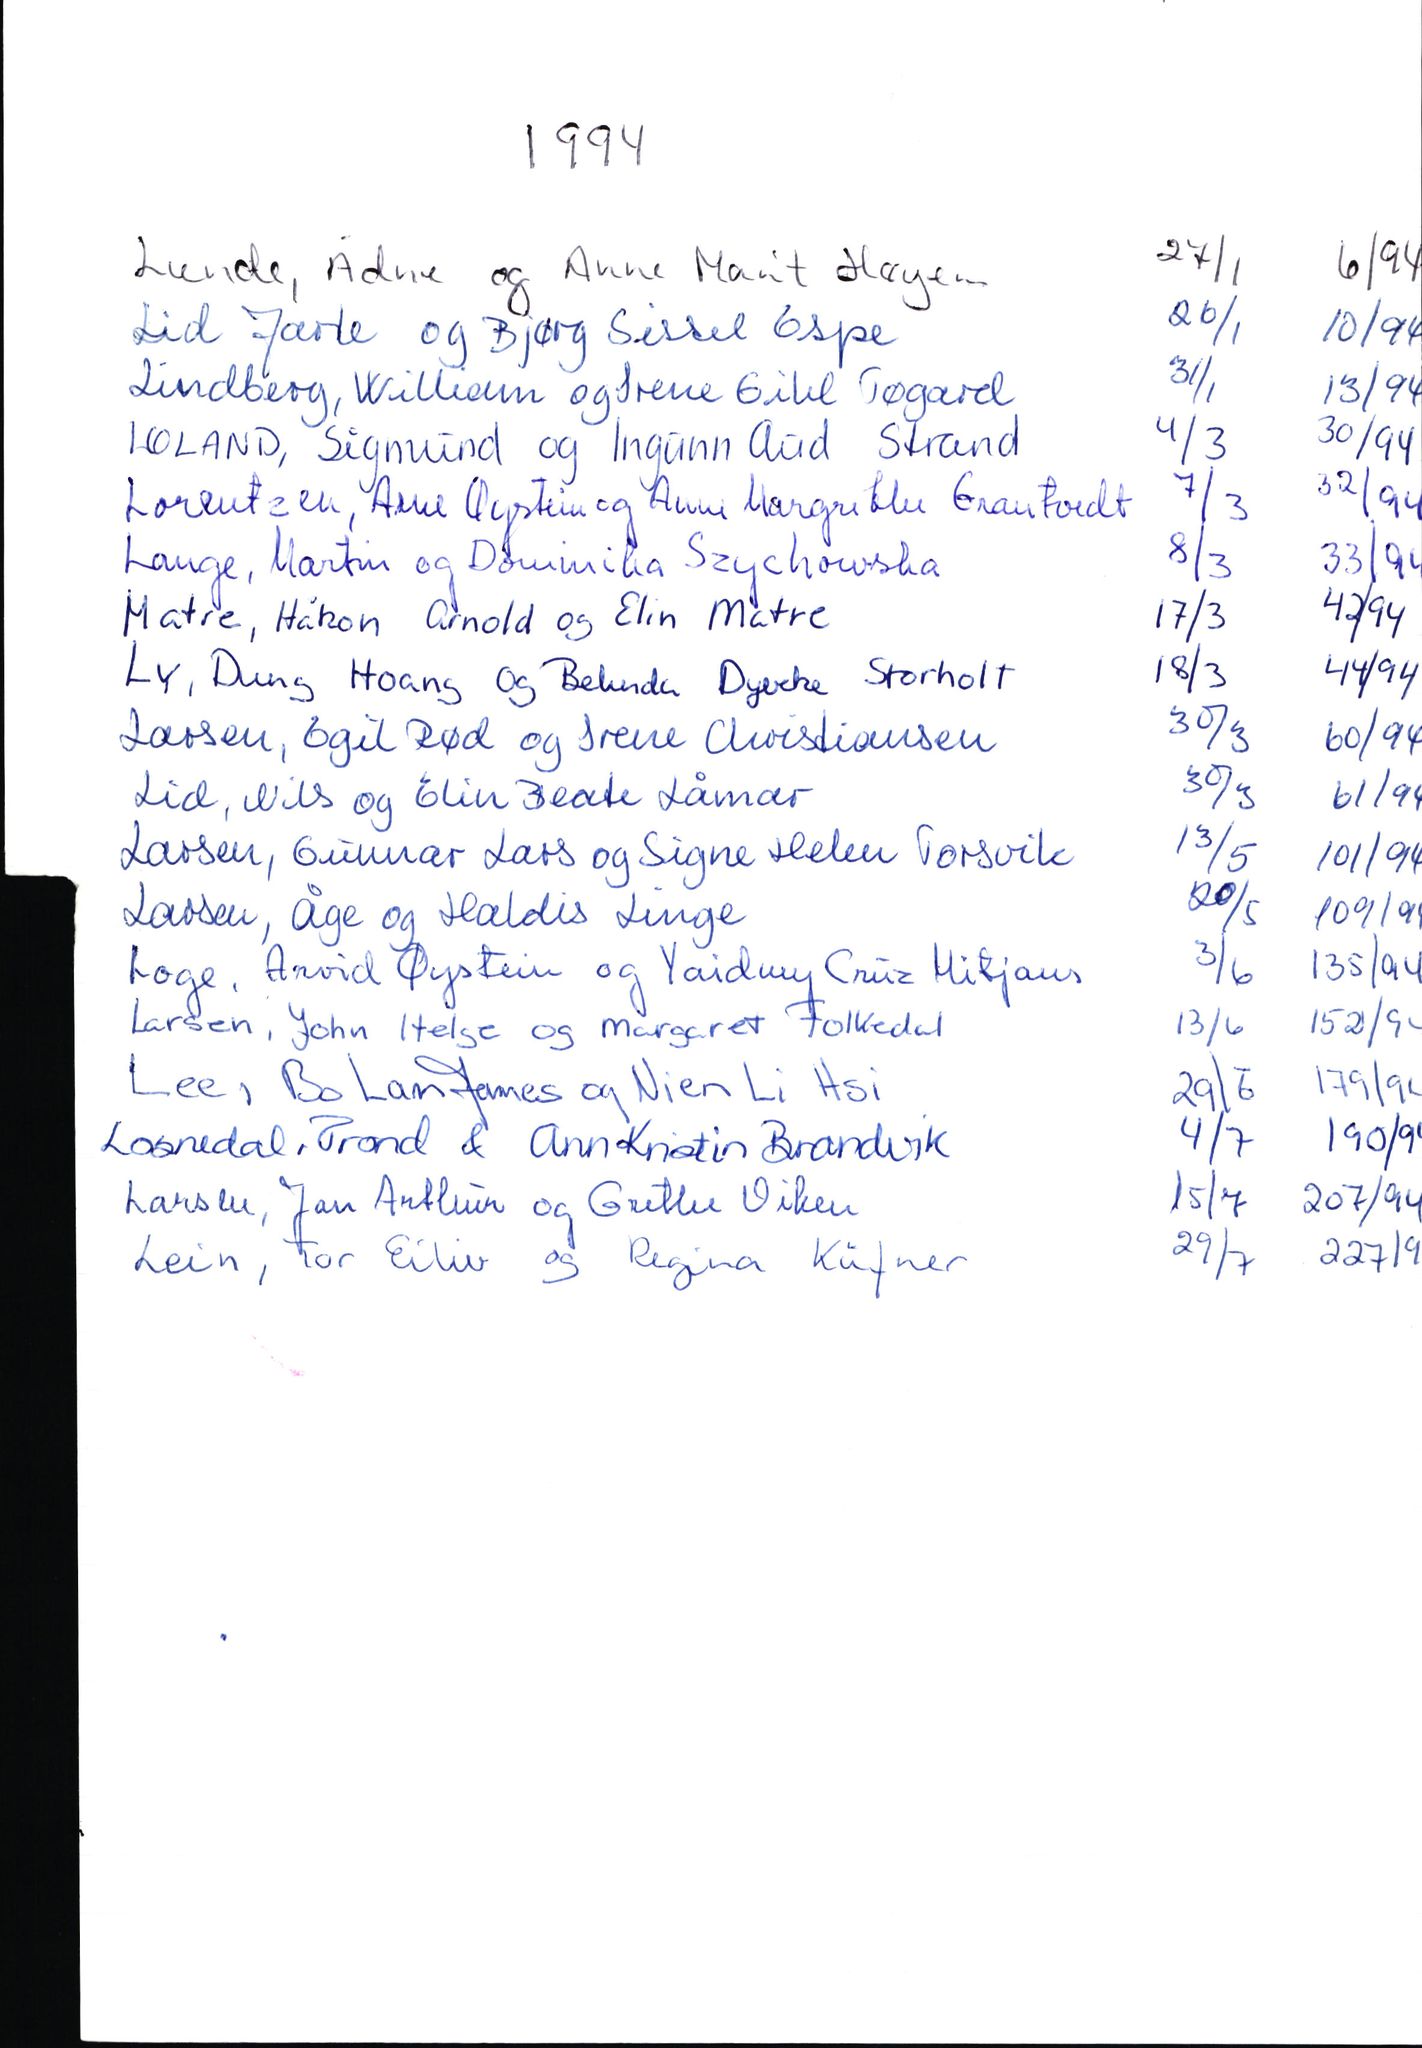 1994
Lunde, Ådne og Anne Marit Høyem 27/1 6/94
Lid Jarle og Bjørg Sissel Espe 26/1 10/94
Lindberg, William og Irene Eikl Tøgard 31/1 13/94
LØLAND, Sigmund og Ingunn Aud Strand 4/3 30/94
Lorentzen, Arne Øystein og Anne Margrethe Grantvedt 7/3 32/94
Lange, Martin og Dominika Szychowska 8/3 33/94
Matre, Håkon Arnold og Elin Matre 17/3 42/94
Ly, Dung Hoang og Belinda Dyveke Storholt 18/3 44/94
Larsen, Egil Rød og Irene Christiansen 30/3 60/94
Lid, Nils og Elin Beate Låmar 30/3 61/94
Larsen, Gunnar Lars og Signe Helen Torsvik 13/5 101/94
Larsen, Åge og Haldis Linge 20/5 109/94
Loge, Arvid Øystein og Yaidmy Cruz Mitjans 3/6 135/94
Larsen, John Helge og Margaret Folkedal 13/6 152/94
Lee, Bo Lan James og Nien Li Hsi 29/6 179/94
Losnedal, Trond & Ann Kristin Brandvik 4/7 190/94
Larsen, Jan Arthur og Grethe Viken 15/7 207/94
Lein, Tor Eiliv og Regina Küfner 29/7 227/9